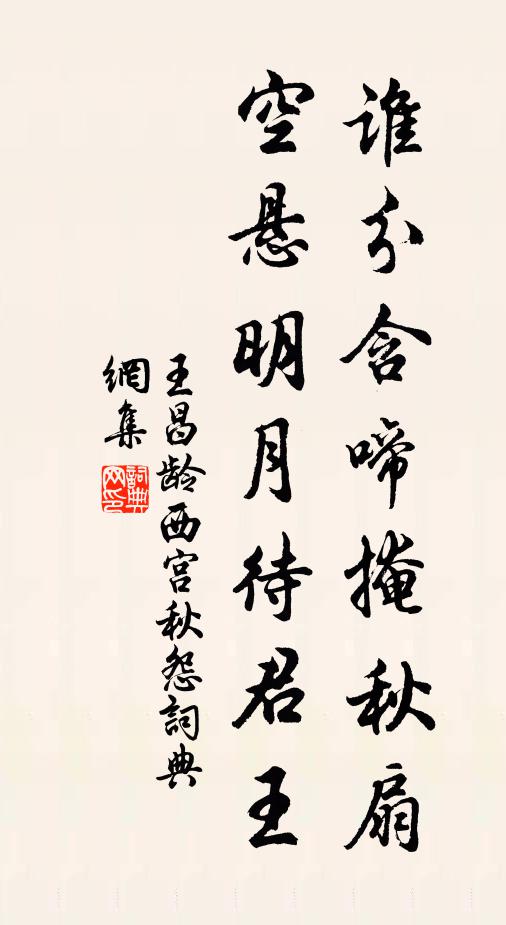 谁分含啼掩秋扇
空悬明月待君王
王昌龄西宫秋怨詞典
網集
詞典
网印